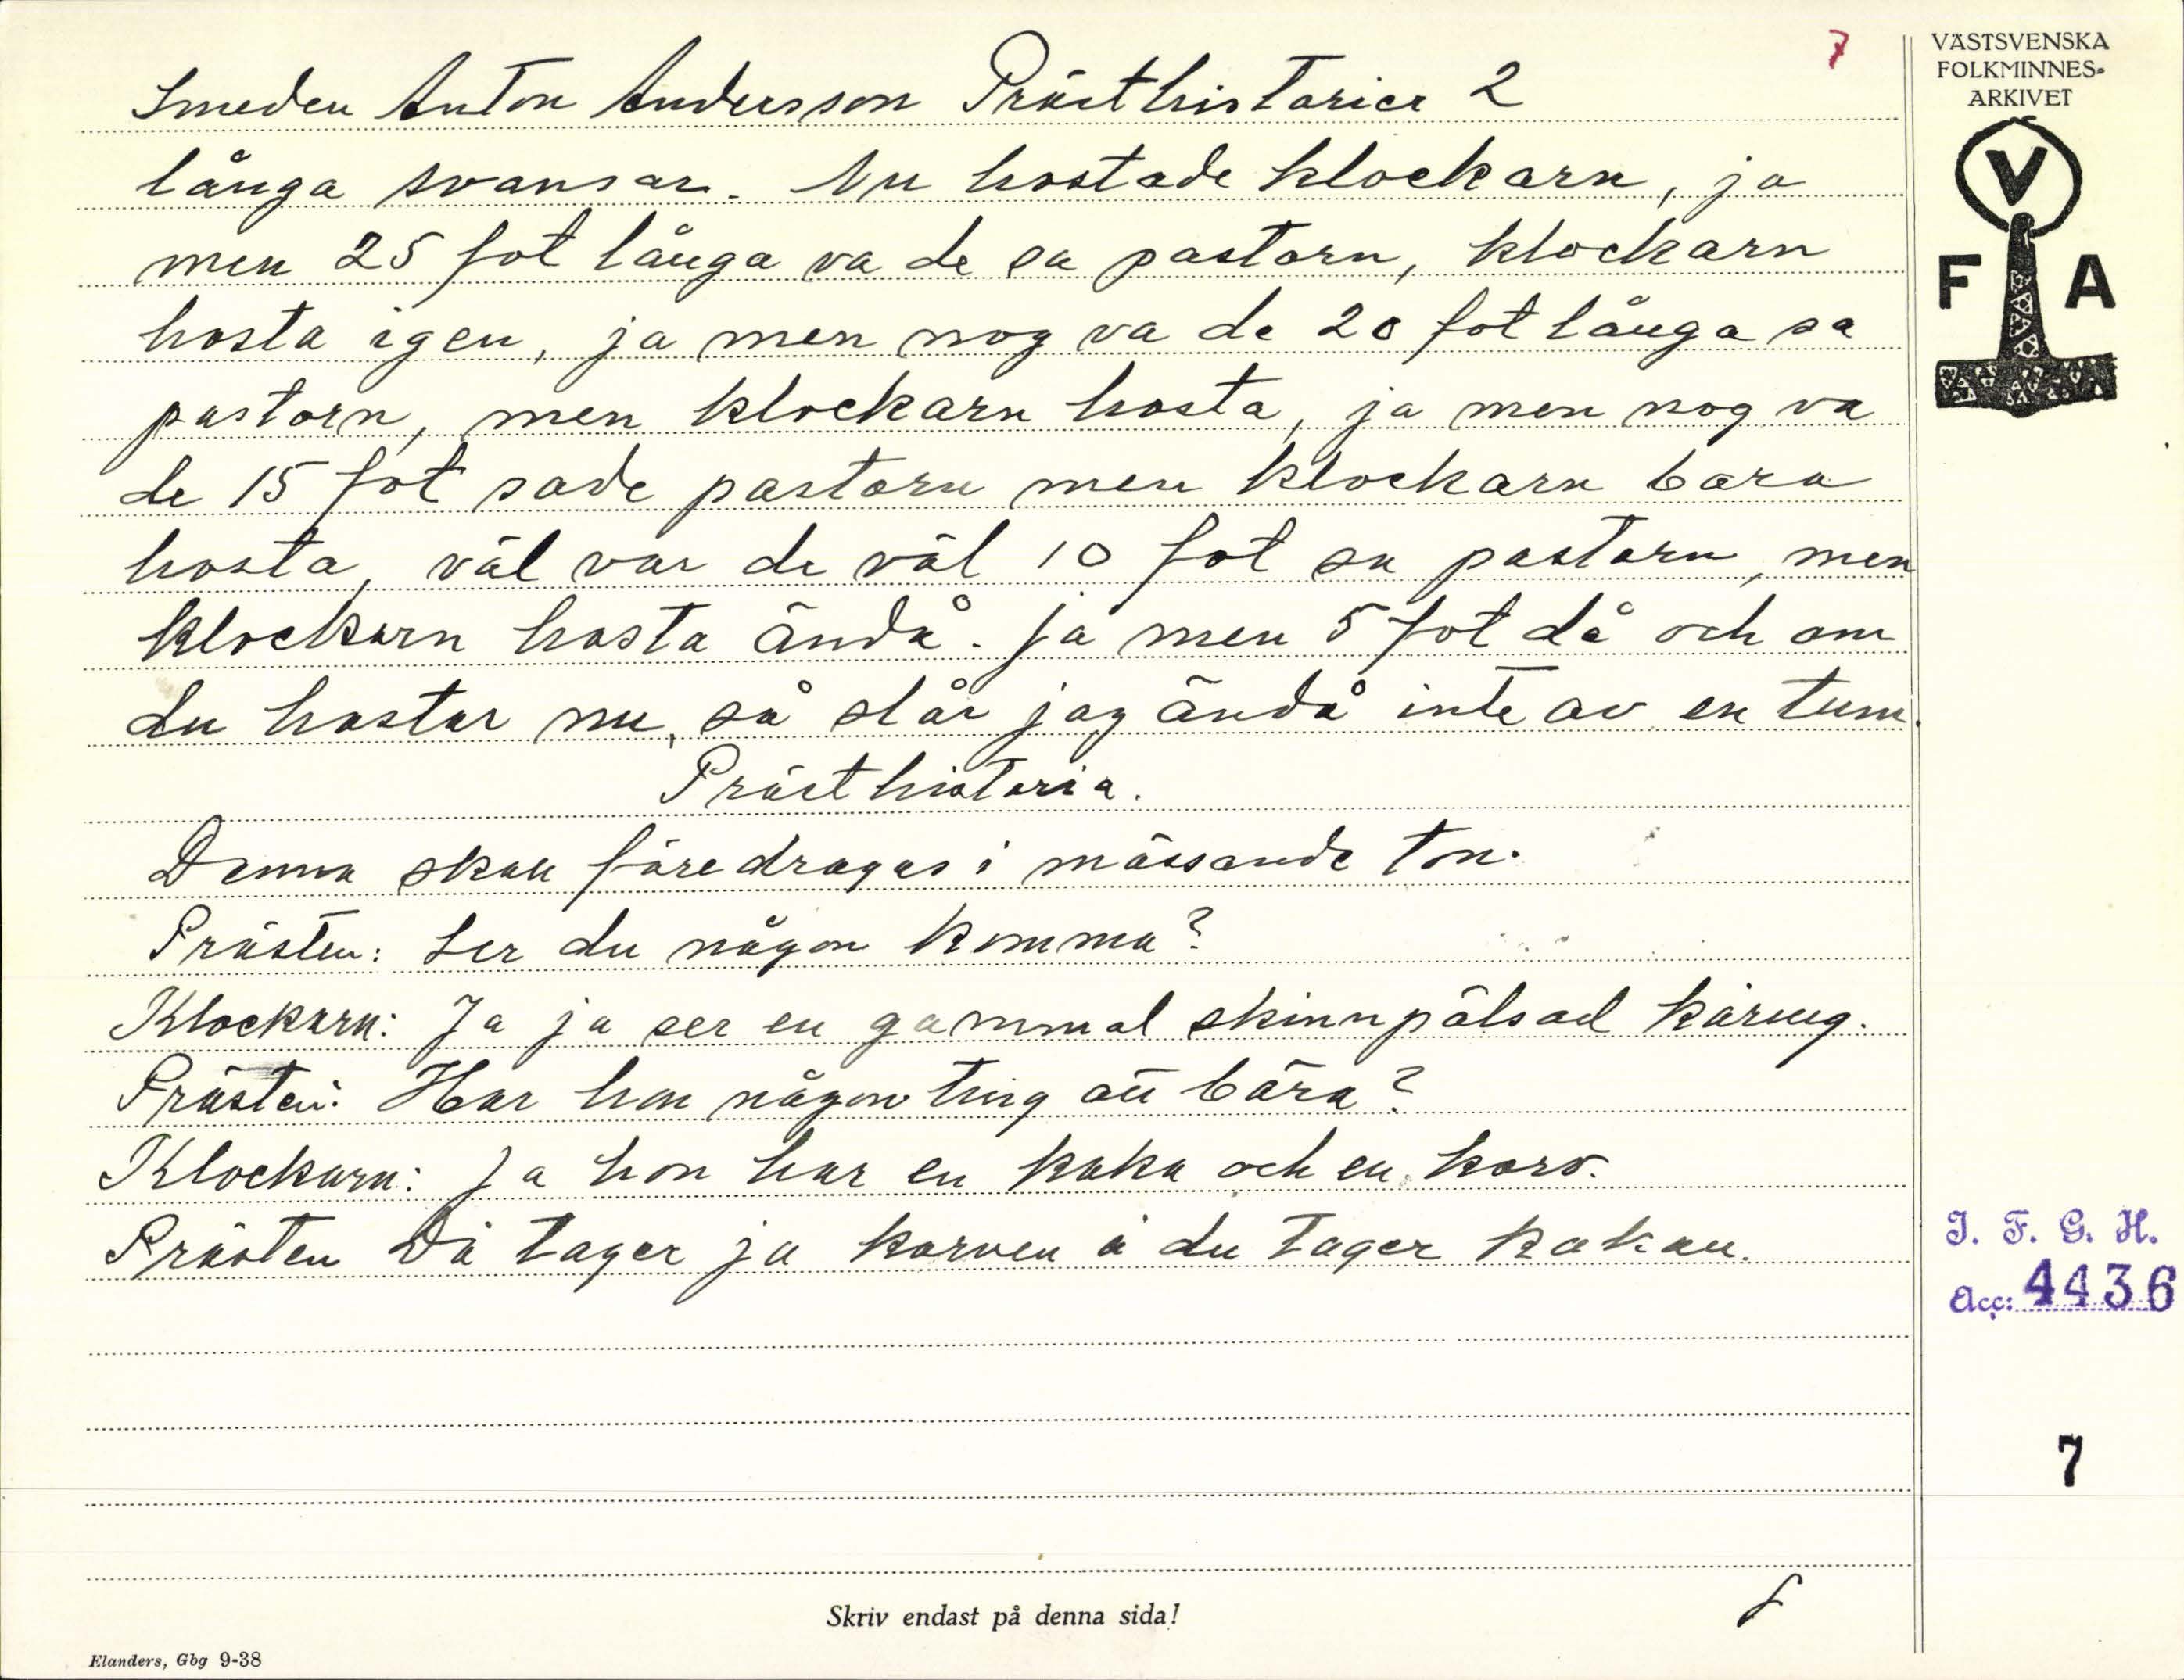 7
VÄSTSVENSKA
FOLKMINNES-
ARKIVET
V
F A
Smeden Anton Andersson Prästhistorier 2
långa svansar. Nu hostade klockarn, ja
men 25 fot långa va de sa pastorn, klockarn
hosta igen, ja men nog va de 20 fot långa sa
pastorn, men klockarn hosta, ja men nog va
de 15 fot sade pastorn men klockarn bara
hosta, väl var de väl 10 fot sa pastorn, men
klockarn hosta ändå. Ja men 5 fot då och om
du hostar nu, så slår jag ändå inte av en tum.
Prästhistoria.
Denna skall föredragas i mässande ton.
Prästen: Ser du någon komma?
Klockarn: Ja ja ser en gammal skinnpälsad käring.
Prästen: Har hon någonting att bära?
Klockarn: Ja hon har en kaka och en korv.
Prästen Då tager ja korven å du tager kakan.
I. F. G. H.
Acc: 4436
7
Skriv endast på denna sida!
Elanders, Gbg 9-38